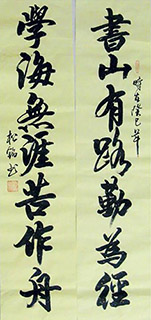 書山有路勤為徑
時在癸巳年
學海無涯苦作舟